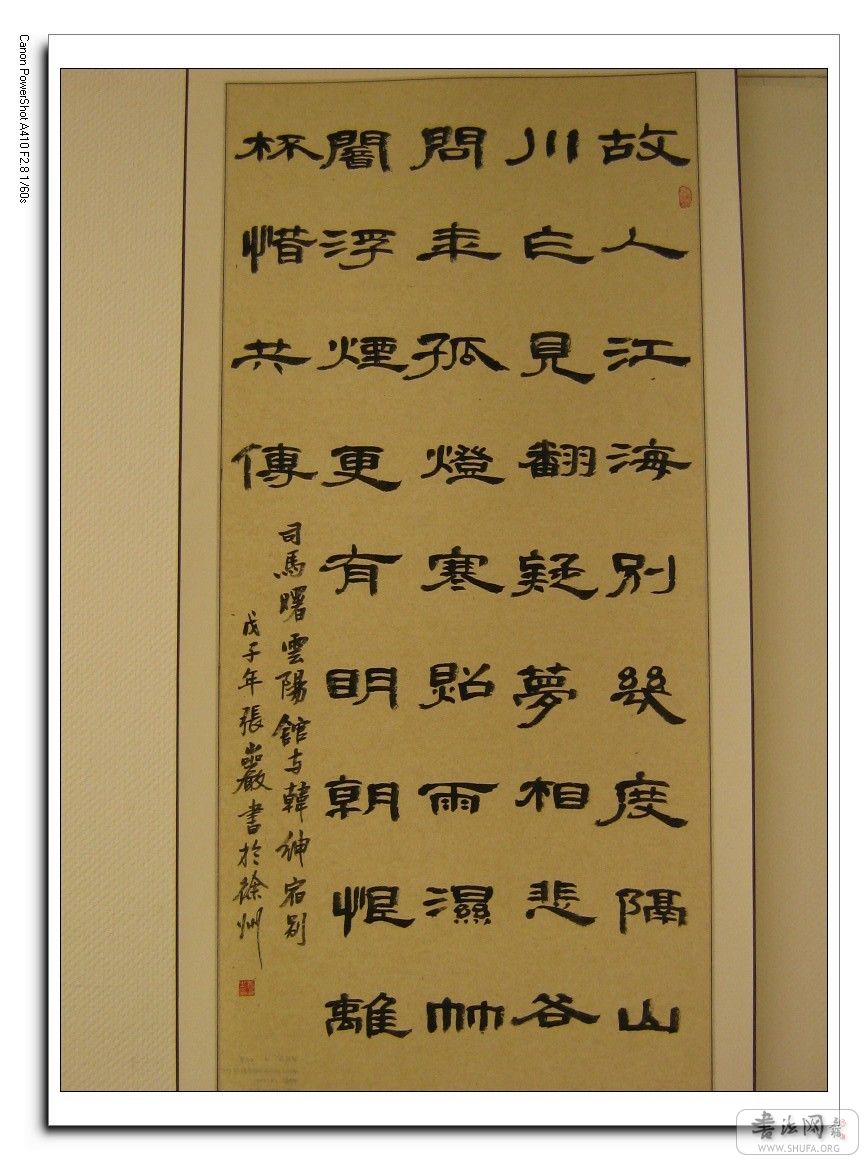 故人江海別幾度隔山
川乍見翻疑夢相悲各
問年孤燈寒照雨濕竹
闇浮煙更有明朝恨離
杯惜共傳
司馬曙雲陽館与韓紳宿別
戊子年張巖書於徐州
Canon PowerShot A410 F2.8 1/60s
书法网
WWW.SHUFA.ORG